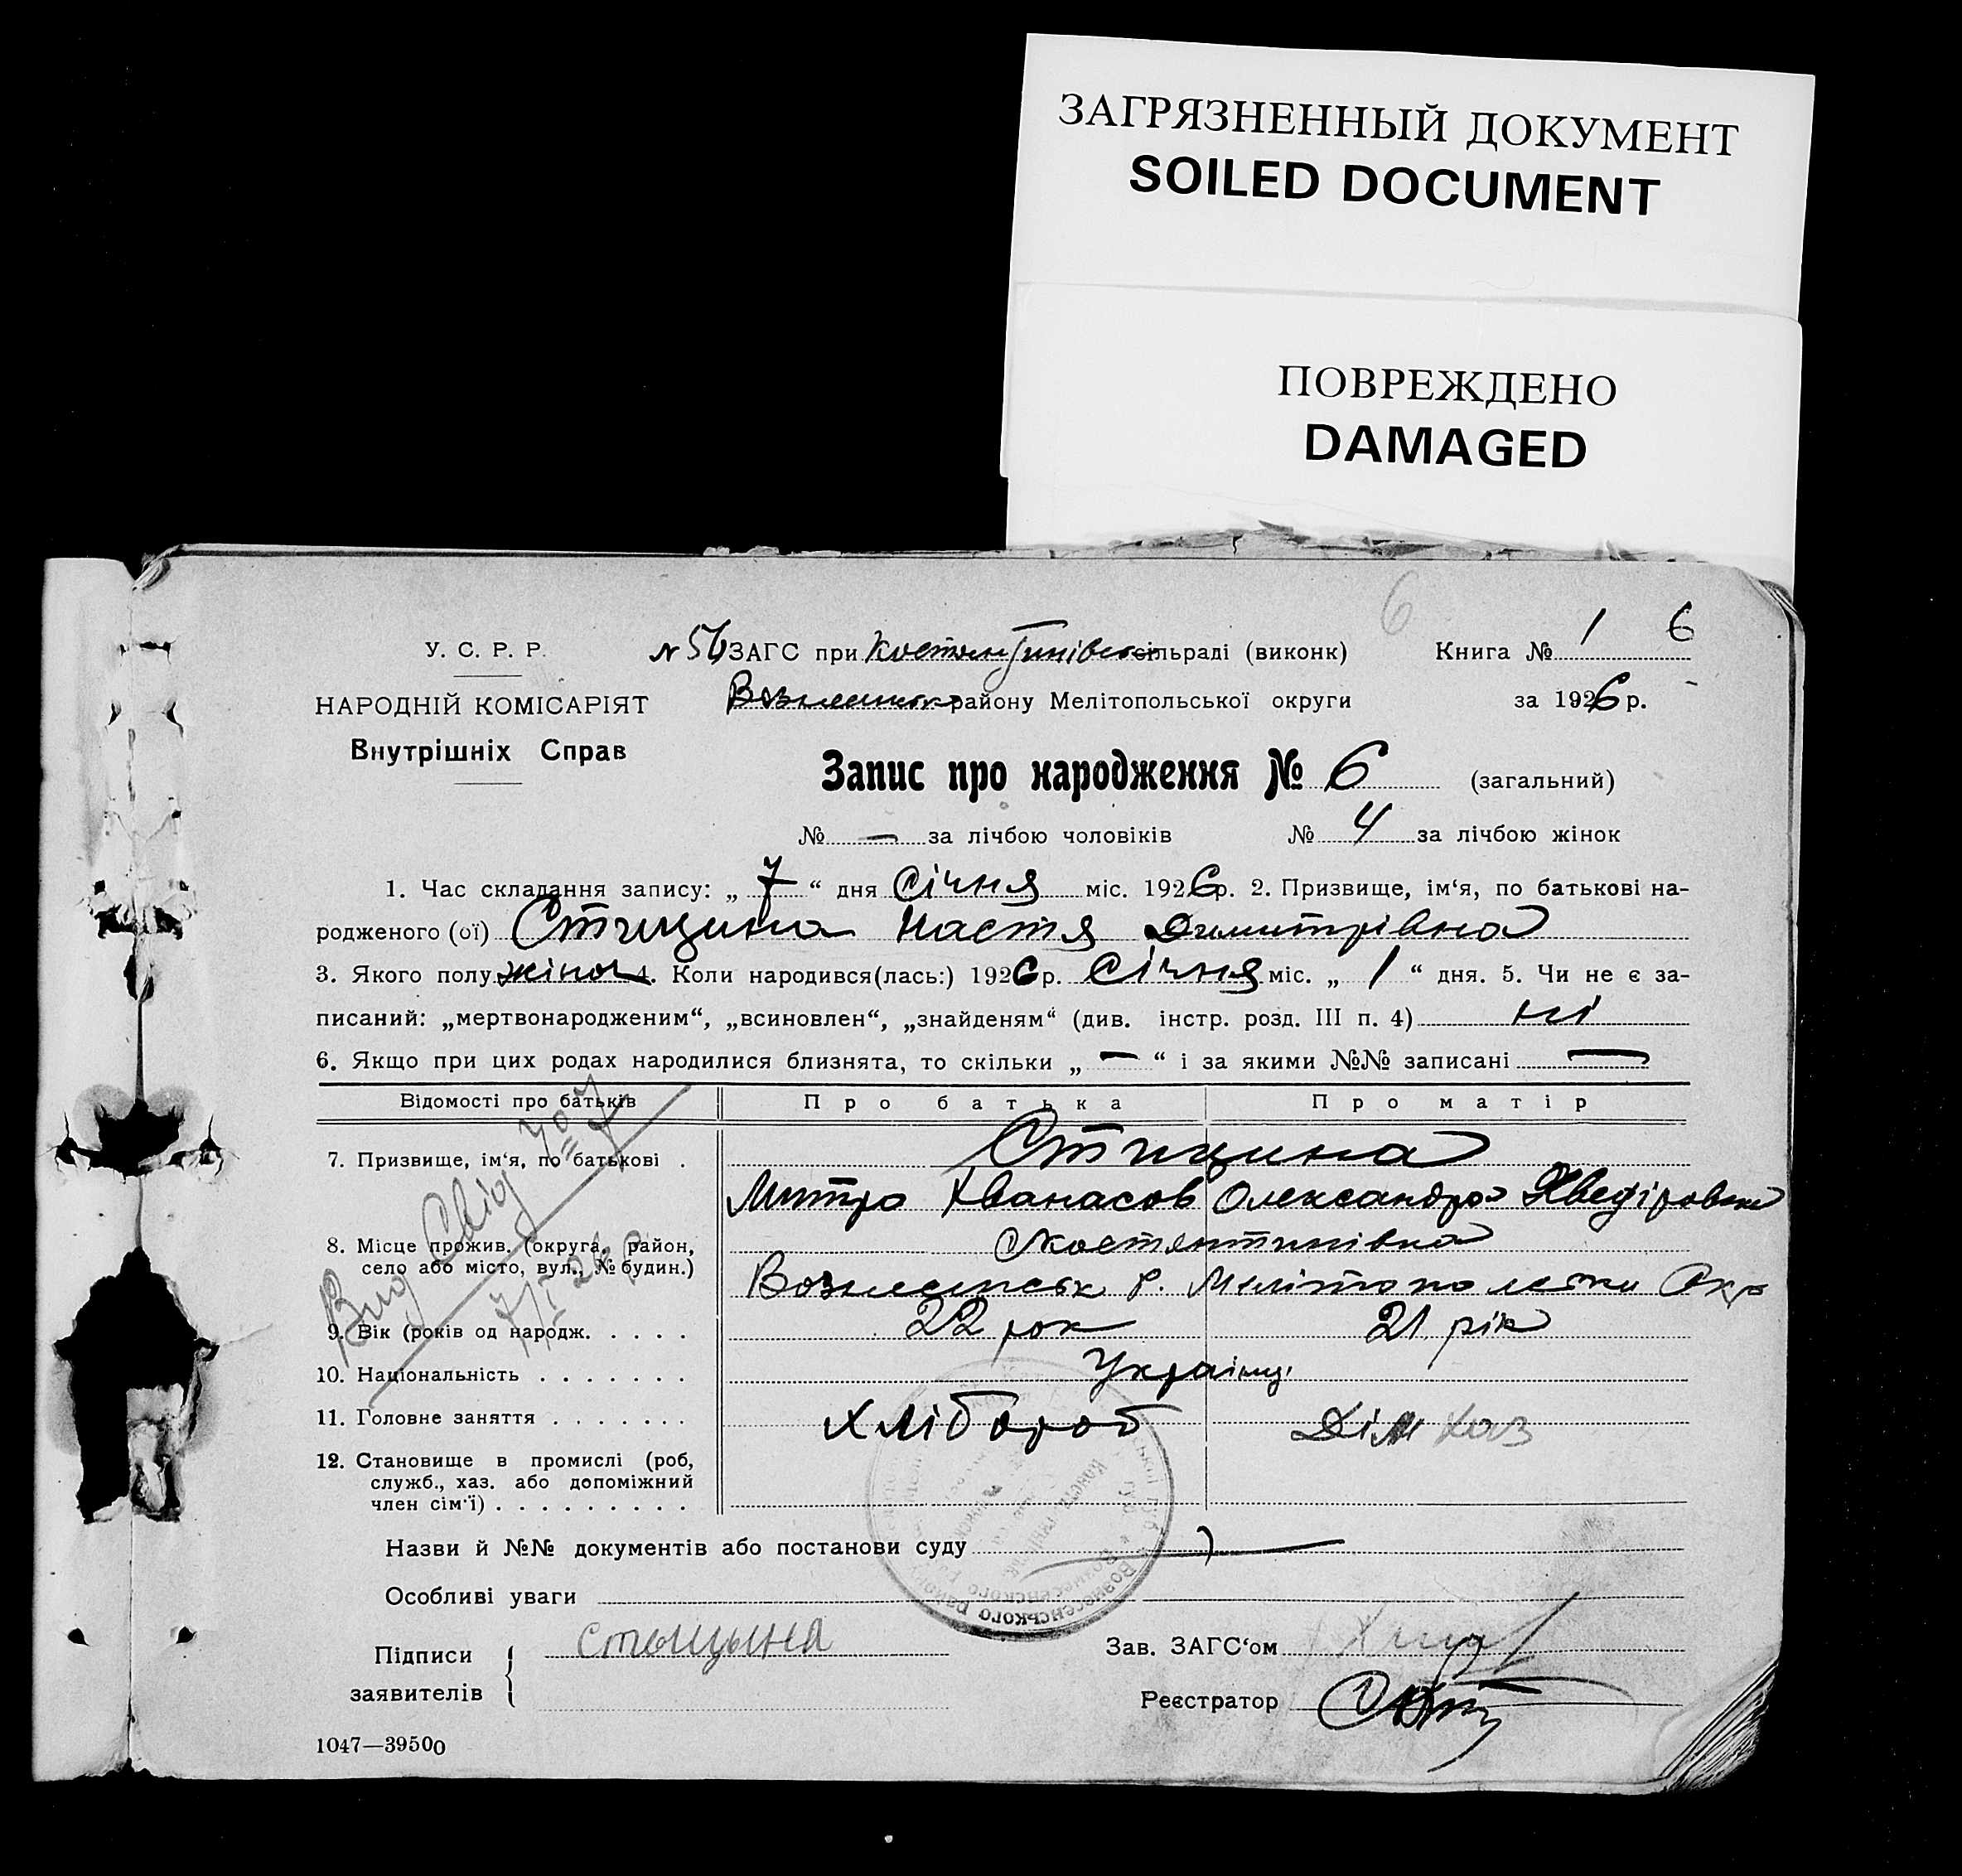 ЗАГРЯЗНЕННЫЙ ДОКУМЕНТ
SOILED DOCUMENT
ПОВРЕЖДЕНО
DAMAGED
6
У. С. Р. Р. № 56 ЗАГС при Костянтинівск сільраді (виконк) Книга № 1 6
НАРОДНІЙ КОМІСАРІЯТ Вознесенськ району Мелітопольської округи за 1926 р.
Внутрішніх Справ
Запис про народження № 6 (загальний)
№ — за лічбою чоловіків № 4 за лічбою жінок
1. Час складання запису: „ 7 “ дня Січня міс. 1926 р. 2. Призвище, ім‘я, по батькові на-
родженого (ої) Стицина Настя Димитрівна
3. Якого полу жіноч 4. Коли народився(лась:) 1926 р. Січня міс. „ 1 “ дня. 5. Чи не є за-
писаний: „мертвонародженим“, „всиновлен“, „знайденям“ (див. інстр. розд. III п. 4) ні
6. Якщо при цих родах народилися близнята, то скільки „ — “ і за якими №№ записані —
Відомості про батьків Про батька Про матір
Стицина
7. Призвище, ім‘я, по батькові .
Митро Хванасов Олександра
8. Місце прожив. (округа, район, Костянтинівка
село або місто, вул., № будин.)
Вознесенськ р. Мелітопольски Окр
Вид Свід
9. Вік (років од народж. . . . . 22 рок 21 рік
10. Національність . . . . . . . Українці
11. Головне заняття . . . . . . . Хлібороб Дім хаз
12. Становище в промислі (роб,
служб., хаз. або допоміжний
член сім‘ї) . . . . . . . . .
Назви й №№ документів або постанови суду
Особливі уваги
Вознесенського району
Підписи Стыцына Зав. ЗАГС‘ом
заявителів
Реєстратор
1047—39500